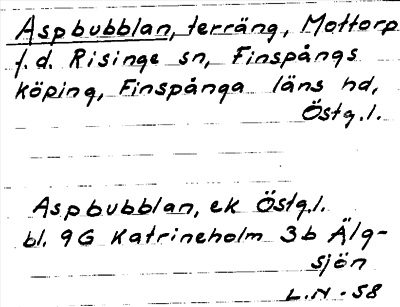 Aspbubblan, terräng, Mottorp
f.d. Risinge sn, Finspångs
köping, Finspånga läns hd,
Östg.l.
Aspbubblan, ek Östg.l.
bl. 9G Katrineholm 3b Älg-
sjön
L.N-58